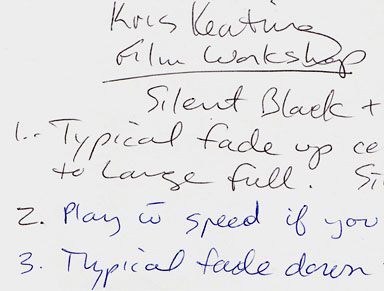 Kris Keating
Film Workshop
Silent Black +
1.. Typical fade up ce
to large full. Si
2. Play w̄ speed if you
3. Typical fade down